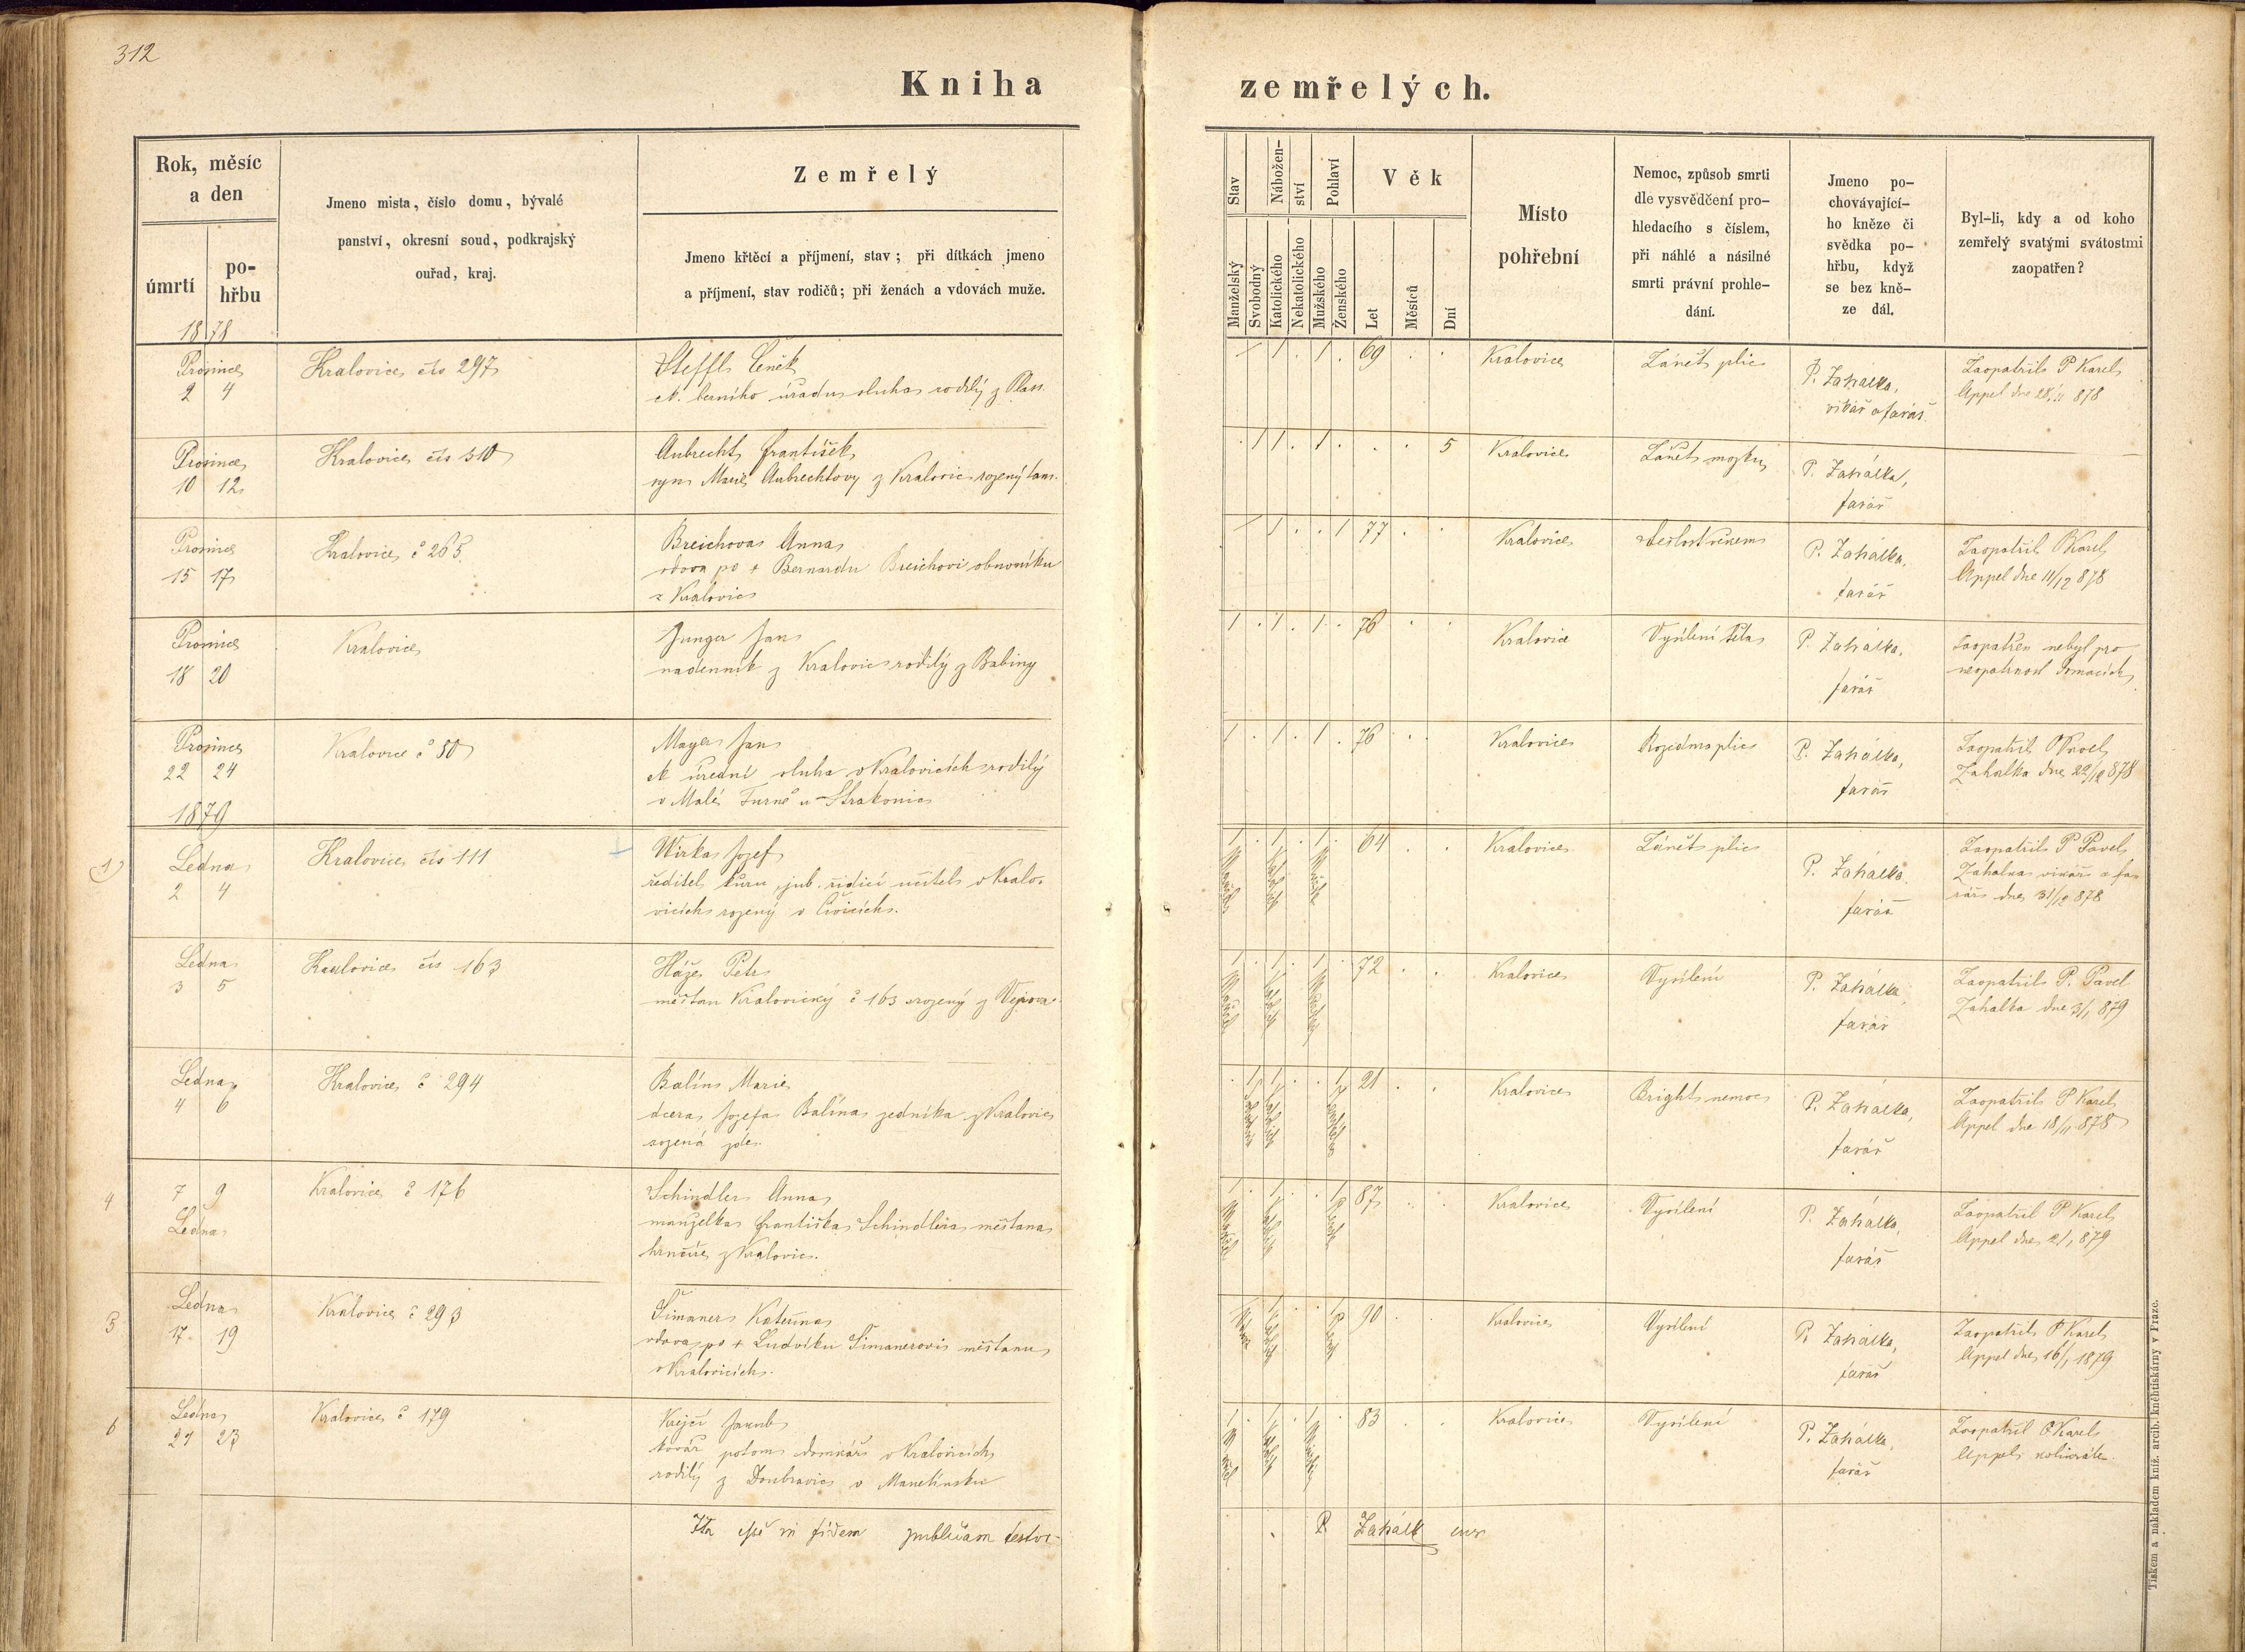 312
Kniha zemřelých.
Rok, měsíc
a den
úmrtí
po-
hřbu
Jmeno mista, číslo domu, bývalé
panství, okresní soud, podkrajský
ouřad, kraj.
Zemřelý
Jmeno křtěcí a příjmení, stav; při dítkách jmeno
a příjmení, stav rodičů; při ženách a vdovách muže.
Stav
Manželský
Svobodný
Nábožen-
ství
Katolického
Nekatolického
Pohlaví
Mužského
Ženského
Věk
Let
Měsíců
Dní
Místo
pohřební
Nemoc, způsob smrti
dle vysvědčení pro-
hledacího s číslem,
při náhlé a násilné
smrti právní prohle-
dání.
Jmeno po-
chovávající-
ho kněze či
svědka po-
hřbu, když
se bez kně-
ze dál.
Byl-li, kdy a od koho
zemřelý svatými svátostmi
zaopatřen?
1878
Prosince
2 4
Kralovice čís 297
Steffl Čeněk
ck. berního úřadu sluha rodilý z Plass.
1 1 . 1 . 69 . .
Kralovice
Zánět plic
P. Zahálka,
vikář a farář.
Zaopatřil P Karel
Appel dne 28/11 878
Prosince
10 12
Kralovice čís 310
Aubrecht František
syn Marie Aubrechtovy z Kralovic rozený tam.
. 1 1 . 1 . . . 5
Kralovice
Zánět mozku
P. Zahálka,
farář
Prosince
15 17
Kralovice č 265
Breichova Anna
vdova po + Bernardu Breichovi obuvníku
z Kralovic
1 1 . . 1 77 . .
Kralovice
Sešlost věkem
P. Zahálka,
farář
Zaopatřil P Karel
Appel dne 11/12 878
Prosince
18 20
Kralovice
Junger Jan
nadenník z Kralovic rodilý z Babiny
1 . 1 . 1 . 76 . .
Kralovice
Vysílení těla
P. Zahálka,
farář
Zaopatřen nebyl pro
neopatrnost domacích
Prosince
22 24
Kralovice č 50
Mayer Jan
ck úřední sluha v Kralovicích rodilý
v Malé Turné u Strakonic
1 . 1 . 1 . 76 . .
Kralovice
Rozedma plic
P. Zahálka,
farář
Zaopatřil P Pavel
Zahalka dne 22/12 878
1879
1
Ledna
2 4
Kralovice čís 111
Wirka Josef
ředitel kuru, jub. řídící učitel v Kralo-
vicích rozený v Čivicích.
1 . 1 . 1 . 64 . .
Kralovice
Zánět plic
P. Zahálka
farář
Zaopatřil P Pavel
Zahalka vikář a fa-
rář dne 31/12 878
Ledna
3 5
Kralovice čís 163
Háže Petr
měšťan Kralovický č 163 rozený z
1 . 1 . 1 . 72 . .
Kralovice
Vysílení
P. Zahálka
farář
Zaopatřil P. Pavel
Zahalka dne 3/1 879
Ledna
4 6
Kralovice č 294
Balín Marie
dcera Josefa Balína zedníka z Kralovic
rozená zde.
. 1 1 . . 1 21 . .
Kralovice
Bright nemoc
P. Zahálka,
farář
Zaopatřil P Karel
Appel dne 18/11 878
4
7 9
Ledna
Kralovice č 176
Schindler Anna
manželka Františka Schindlera měšťana
hrnčíře z Kralovic.
1 . 1 . . 1 87 . .
Kralovice
Vysílení
P. Zahálka,
farář
Zaopatřil P Karel
Appel dne 2/1 879
5
Ledna
17 19
Kralovice č 293
Šimaner Kateřina
vdova po + Ludvíku Šimanerovi měšťanu
v Kralovicích.
1 . . 1 90 . .
Kralovice
Vysílení
P. Zahálka,
farář
Zaopatřil P Karel
Appel dne 16/1 1879
6
Ledna
21 23
Kralovice č 179
Krejčí Jakub
kovář potom domkář v Kralovicích
rodilý z Doubravice v Manetínsku
1 . 1 . 1 . 83 . .
Kralovice
Vysílení
P. Zahálka,
farář
Zaopatřil P Karel
Appel kolikráte.
Ita esse in fidem publicam testor
P. Zahálk
Tiskem a nákladem kníž. arcib. knihtiskárny v Praze.